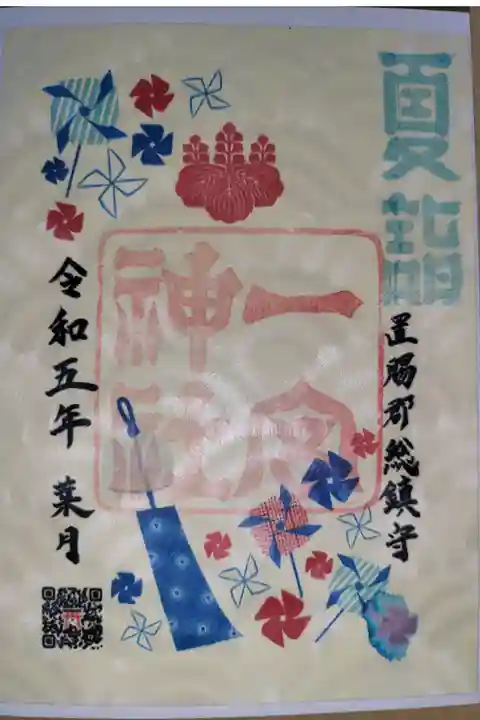 夏詣
置賜郡総鎮守
一宮
神社
令和五年 葉月